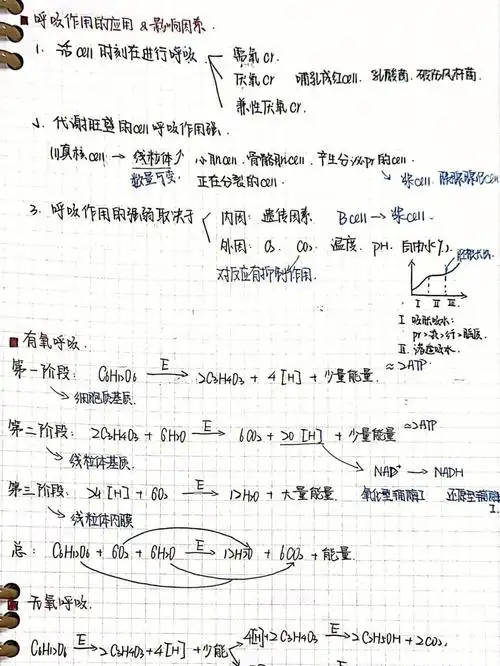 呼吸作用的应用 & 影响因素.
1. 活cell时刻在进行呼吸
需氧cr.
厌氧cr 哺乳成红cell. 乳酸菌. 破伤风杆菌
兼性厌氧cr.
2. 代谢旺盛的cell呼吸作用强.
(1)真核cell → 线粒体↑ 心肌cell. 骨骼肌cell. 产生分泌pr的cell.
数量可变. 正在分裂的cell. 浆cell. 胰腺腺泡cell
3. 呼吸作用的强弱取决于
内因: 遗传因素 B cell → 浆cell.
外因: O₂ CO₂ 温度. pH. 自由水(%).
对反应有抑制作用.
I II III
I 吸胀吸水:
pr>淀>纤>脂质.
II. 渗透吸水.
有氧呼吸.
第一阶段: C6H12O6 —E→ 2C3H4O3 + 4[H] + 少量能量. ≈2ATP
细胞质基质.
第二阶段: 2C3H4O3 + 6H2O —E→ 6CO2 + 20[H] + 少量能量 ≈2ATP
线粒体基质. NAD⁺ → NADH
第三阶段: 24[H] + 6O2 —E→ 12H2O + 大量能量. 氧化型辅酶I 还原型辅酶I.
线粒体内膜
总: C6H12O6 + 6O2 + 6H2O —E→ 12H2O + 6CO2 + 能量.
无氧呼吸.
C6H12O6 —E→ 2C3H4O3 + 4[H] + 少能 4[H]+2C3H4O3 —E→ 2C2H5OH + 2CO2.